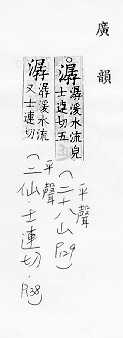 廣韻
潺 潺湲水流皃士連切五
(平聲二十八山P129)
潺 潺湲水流又士連切
(平聲二仙·士連切·P138)